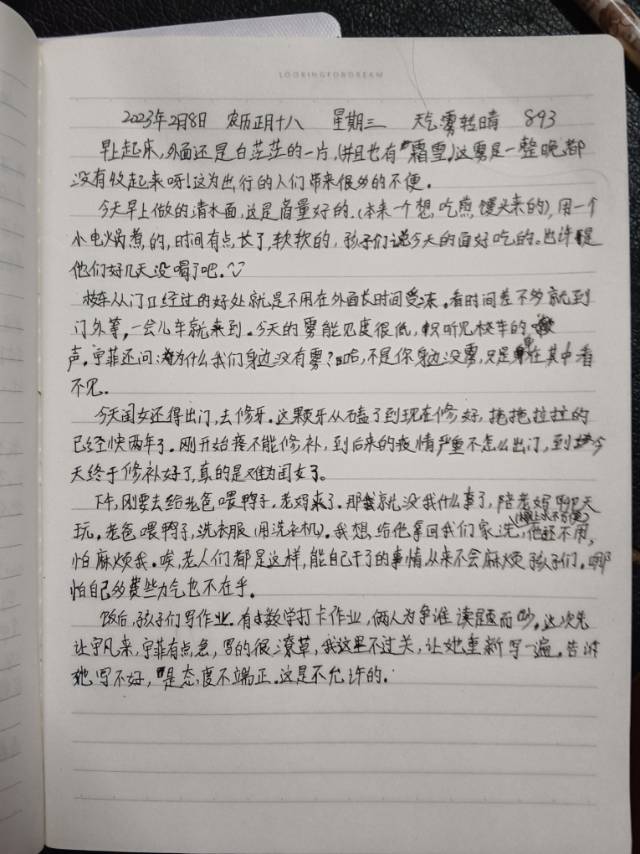 LOOKINGFORDREAM
2023年2月8日 农历正月十八 星期三 天气:雾转晴 893
早上起床,外面还是白茫茫的一片,(并且也有"霜雪)这雾是一整晚都
没有收起来呀!这为出行的人们带来很多的不便。
今天早上做的清水面,这是省量好的。(本来一个想吃煎馒头来的),用一个
小电火锅煮的,时间有点长了,软软的,孩子们说今天的面好吃的。也许是
他们好几天没喝了吧。
校车从门口经过的好处就是不用在外面长时间受冻。看时间差不多就到
门外等,一会儿车就来到。今天的雾能见度很低,只听见校车的
声。宁菲还问:为什么我们身边没有雾?哈,不是你身边没雾,只是在其中看
不见。
今天闺女还得出门,去修牙。这颗牙从磕了到现在修好,拖拖拉拉的
已经快两年了。刚开始医不能修补,到后来的疫情严重不怎么出门,到今
天终于修补好了,真的是难为闺女了。
下午,刚要去给老爸喂鸭子,老妈来了。那我就没我什么事了,陪老妈聊天
玩。老爸喂鸭子,洗衣服(用洗衣机)。我想给他拿回我们家洗,他还不用,
怕麻烦我。唉,老人们都是这样,能自己干了的事情从来不会麻烦孩子们。哪
怕自己多费些力气也不在乎。
饭后,孩子们写作业。有数学打卡作业,俩人为争谁读题而吵。这次先
让宁凡来,宁菲有点急,写的很潦草,我这里不过关,让她重新写一遍。告诉
她写不好,是态度不端正。这是不允许的。